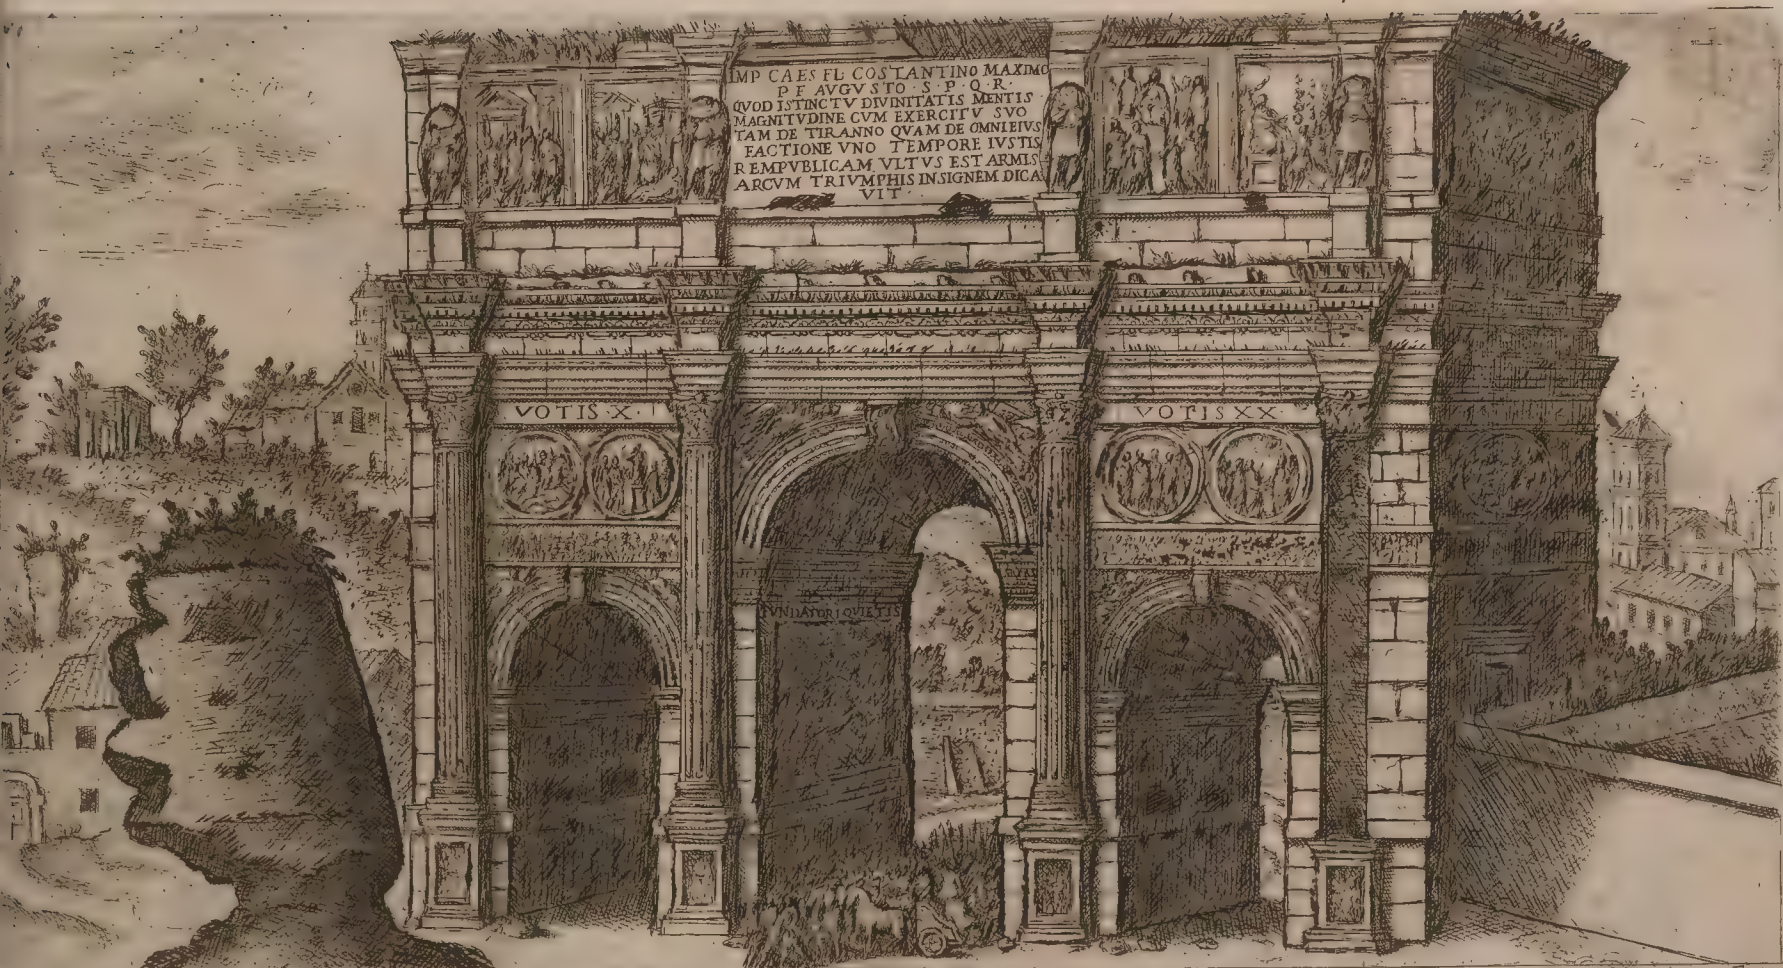 IMP CAES FL COSTANTINO MAXIMO
P F AVGVSTO · S · P · Q · R ·
QVOD ISTINCTV DIVINITATIS MENTIS
MAGNITVDINE CVM EXERCITV SVO
TAM DE TIRANNO QVAM DE OMNI EIVS
FACTIONE VNO TEMPORE IVSTIS
REMPVBLICAM VLTVS EST ARMIS
ARCVM TRIVMPHIS INSIGNEM DICA
VIT
VOTIS · X ·
VOTIS XX ·
FVNDATORI QVIETIS